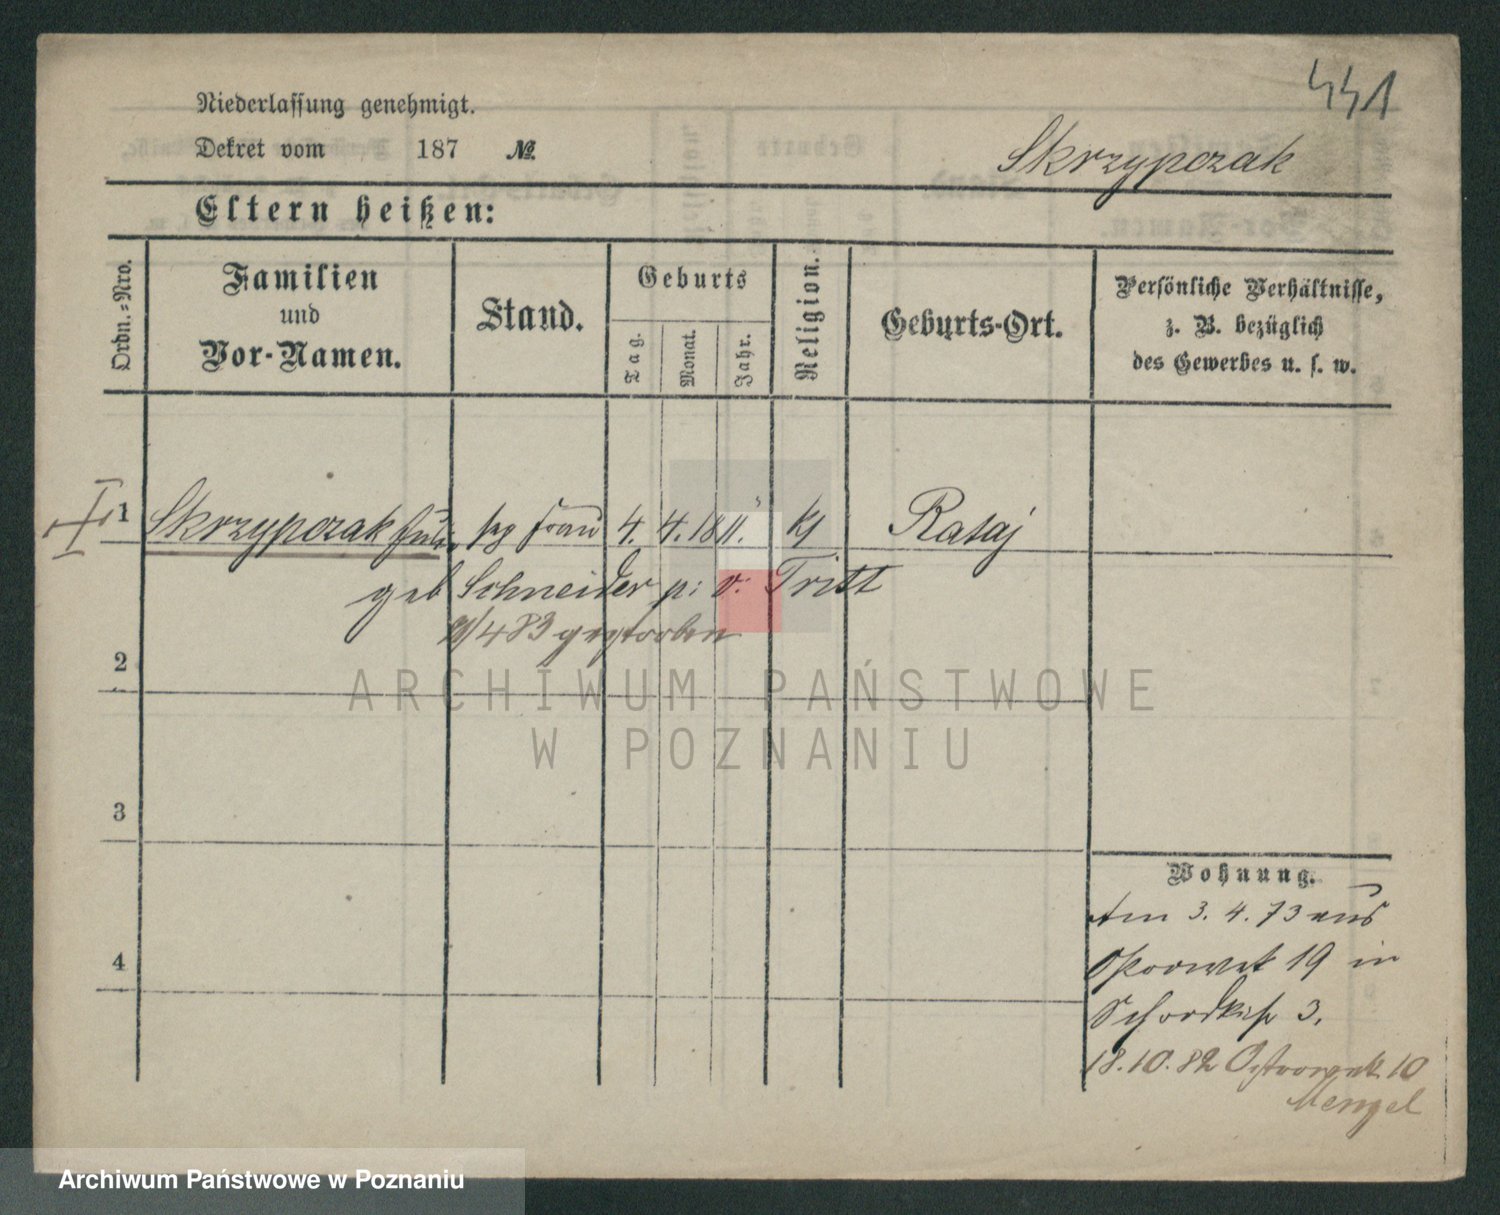 441
Niederlassung genehmigt.
Dekret vom 187 №
Skrzypczak
Eltern heißen:
Ordn.=Nro.
Familien
und
Vor-Namen.
Stand.
Geburts
Tag.
Monat.
Jahr.
Religion.
Geburts-Ort.
Persönliche Verhältnisse,
z. B. bezüglich
des Gewerbes u. s. w.
1 Skrzypczak Frau 4. 4. 1811. Rataj
geb Schneider p: v. Tritt
483 gestorben
2
ARCHIWUM PAŃSTWOWE
W POZNANIU
3
4
Wohnung.
Am 3. 4. 73 aus
19 in
3.
18.10.82 10
Mengel
Archiwum Państwowe w Poznaniu